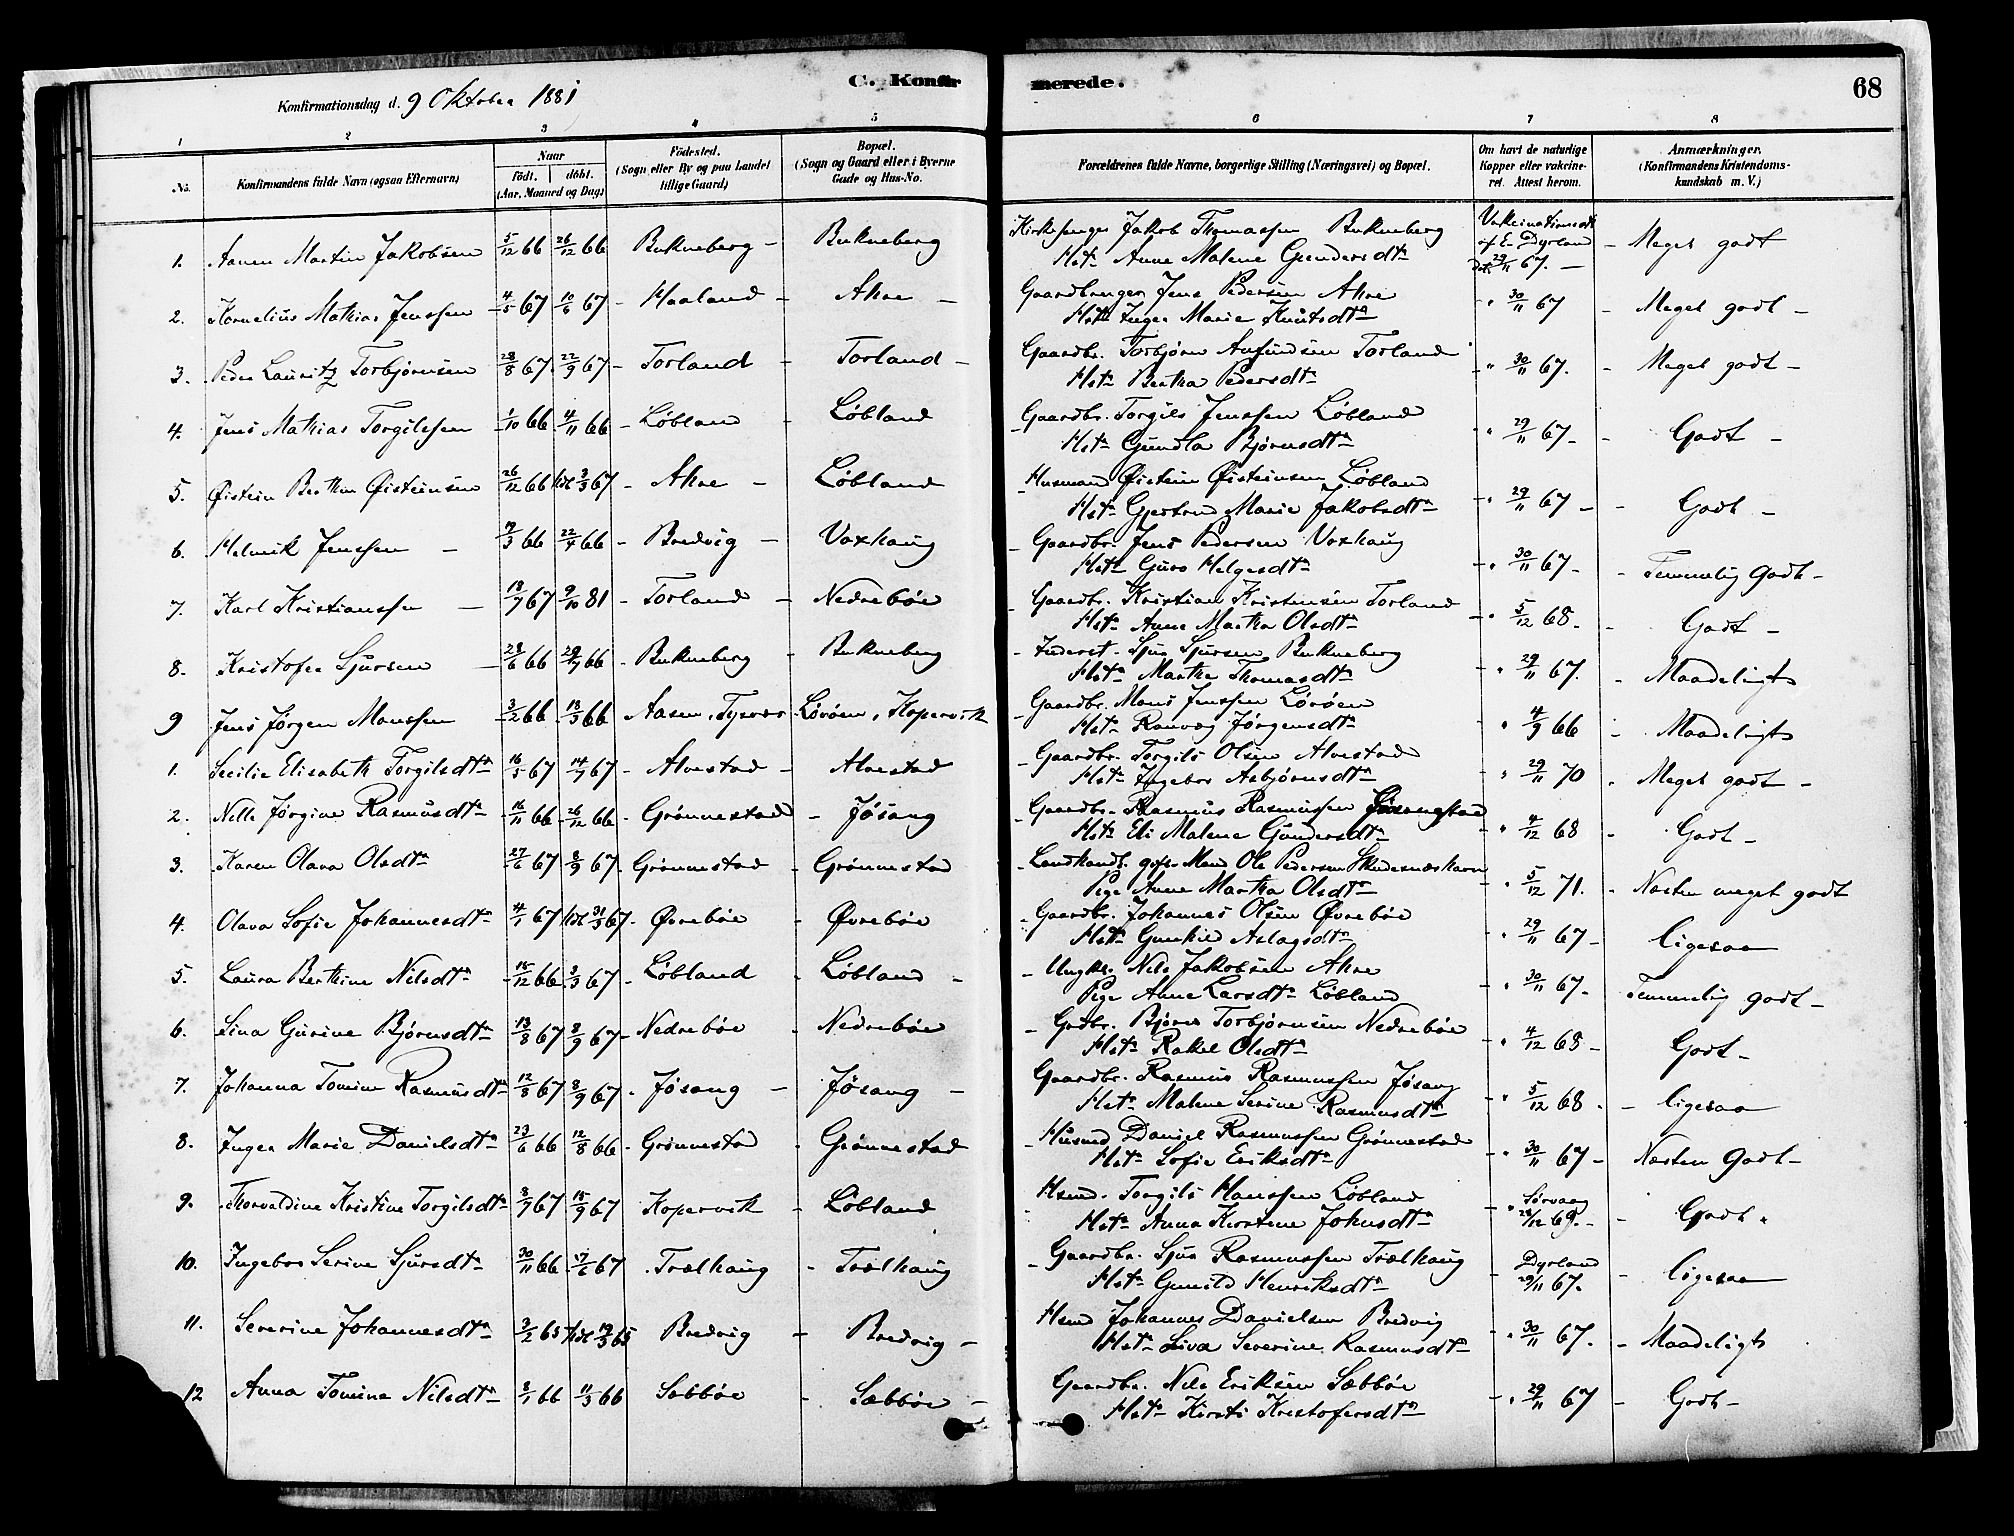 C. Konfir merede. 68
Konfirmationsdag d. 9 Oktober 1881
1 2 3 4 5 6 7 8
No. Konfirmandens fulde Navn (ogsaa Efternavn) Naar födt. döbt. (Aar, Maaned og Dag) Födested. (Sogn eller By og paa Landet tillige Gaard) Bopæl. (Sogn og Gaard eller i Byerne Gade og Hus-No. Forældrenes fulde Navne, borgerlige Stilling (Næringsvei) og Bopæl. Om havt de naturlige Kopper eller vakcineret. Attest herom. Anmærkninger. (Konfirmandens Kristendomskundskab m. V.)
1. Martin Jakobsen 5/12 66 26/12 66 Bukneberg - Bukneberg Jakob Thomassen Bukneberg
Hst. Anne Malene Gundersdtr. af E. Dyrland 29/11 67. - Meget godt
2. Kornelius Mathias Jenssen 4/5 67 10/6 67 - Haaland - Akre - Gaardbruger Jens Pedersen Akre
Hst. Inger Marie Knutsdtr. " 30/11 67 - Meget godt -
3. Peder Lauritz Torbjørnsen 28/8 67. 22/9 67 - Torland - Torland - Gaardbr. Torbjørn Amundsen Torland
Hst. Bertha Pedersdtr. " 30/11 67. - Meget godt -
4. Jens Mathias Torgilssen 1/10 66 4/11 66 - Løbland - Løbland - Gaardbr. Torgils Jenssen Løbland
Hst. Gundla Bjørnsdtr. " 29/11 67 - Godt -
5. Øistein Berthin Øisteinsen 26/12 66 3/3 67 - Akre - Løbland - Husmand Øistein Øisteinsen Løbland
Hst. Gjertrud Marie Jakobsdtr. " 29/11 67 - Godt -
6. Helmik Jenssen - 66 22/4 66 - Bredvig - Voxhaug - Gaardbr. Jens Pedersen Voxhaug
Hst. Guro Helgesdtr. " 30/11 67 - Temmelig godt -
7. Karl Kristianssen - 13/7 67 9/10 81 - Torland - Nedrebøe - Gaardbr. Kristian Kristensen Torland
Hst. Anne Martha Olsdtr. " 5/12 68. - Godt -
8. Kristofer Sjursen - 23/6 66 29/7 66 - Bukneberg - Bukneberg - Inderst. Sjur Sjursen Bukneberg
Hst. Marthe Thomasdtr. " 29/11 67. - Maadeligt
9 Jens Jørgen Monssen 3/2 66 13/3 66 Aasen, Tysvær Lørøen, Kopervik - Gaardbr. Mons Jenssen Lørøen
Hst. Ranveg Jørgensdtr. " 4/9 66 - Maadeligt
1. Secilie Elisabeth Torgilsdtr. 16/5 67 14/7 67 - Alvestad - Alvestad - Gaardbr. Torgils Olsen Alvestad
Hst. Ingebor Asbjørnsdtr. " 29/11 70 - Meget godt -
2. Nille Jørgine Rasmusdtr. 16/11 66 26/12 66 - Grønnestad - Jøsang - Gaardbr. Rasmus Rasmussen
Hst. Eli Malene Gundersdtr. " 4/12 68 - Godt -
3. Karen Olava Olsdtr. 27/6 67 8/9 67 - Grønnestad - Grønnestad - Landhandl. gift Mand Ole Pedersen Skudesnæshavn
Pige Anne Martha Olsdtr. " 5/12 71. - Næsten meget godt
4. Olava Sofie Johannesdtr. 4/1 67 31/3 67 - Øvrebøe - Øvrebøe - Gaardbr. Johannes Olsen Øvrebøe
Hst. Gunhild Aslagsdtr. " 29/11 67 - Ligesaa
5. Laura Berthine Nilsdtr. 15/12 66 3/3 67 - Løbland - Løbland - Ungkr. Nils Jakobsen Akre
Pige Anne Larsdtr. Løbland " 30/11 67 - Temmelig godt -
6. Lina Gurine Bjørnsdtr. 13/8 67 8/9 67 - Nedrebøe - Nedrebøe - Grdbr. Bjørn Torbjørnsen Nedrebøe
Hst. Rakel Olsdtr. " 4/12 68 - Godt -
7. Johanna Tomine Rasmusdtr. 12/8 67 8/9 67 - Jøsang - Jøsang - Gaardbr. Rasmus Rasmussen Jøsang
Hst. Malene Serine Rasmusdtr. " 5/12 68 - Ligesaa
8. Inger Marie Danielsdtr. 23/6 66 12/8 66 - Grønnestad - Grønnestad - Husmd Daniel Rasmussen Grønnestad
Hst. Sofie Eriksdtr. " 30/11 67 - Næsten Godt -
9. Thorvaldine Kristine Torgilsdtr. 8/7 67 15/9 67 Kopervik - Løbland Hsmd. Torgils Hanssen Løbland
Hst. Anna Kirstine Johnsdtr. " Sørvaag 28/12 69. - Godt.
10. Ingebor Serine Sjursdtr. 30/11 66 17/6 67 - Trælhaug - Trælhaug - Gaardbr. Sjur Rasmussen Trælhaug
Hst. Gunild Henriksdtr. Dyrland 29/11 67. - Ligesaa
11. Severine Johannesdtr. 3/2 65 19/3 65 Bredvig - Bredvig - Hsmd Johannes Danielsen Bredvig
Hst. Liva Severine Rasmusdtr. " 30/11 67. - Maadeligt
12 Anna Tomine Nilsdtr. 8/1 66 11/3 66 Sæbbøe - Sæbbøe - Gaardbr. Nils Eriksen Sæbbøe
Hst. Kirsti Kristofersdtr. " 29/11 67 - Godt -